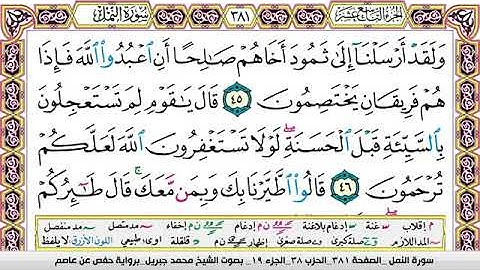 الجزء التاسع عشر ٣٨١ سورة النمل
وَلَقَدْ أَرْسَلْنَآ إِلَىٰ ثَمُودَ أَخَاهُمْ صَٰلِحًا أَنِ ٱعْبُدُوا۟ ٱللَّهَ فَإِذَا
هُمْ فَرِيقَانِ يَخْتَصِمُونَ ٤٥ قَالَ يَٰقَوْمِ لِمَ تَسْتَعْجِلُونَ
بِٱلسَّيِّئَةِ قَبْلَ ٱلْحَسَنَةِ ۖ لَوْلَا تَسْتَغْفِرُونَ ٱللَّهَ لَعَلَّكُمْ
تُرْحَمُونَ ٤٦ قَالُوا۟ ٱطَّيَّرْنَا بِكَ وَبِمَن مَّعَكَ ۚ قَالَ طَٰٓئِرُكُمْ
م إقلاب غنة إدغام بلاغنة ن م إدغام ن م إخفاء مد متصل مد منفصل
المد اللازم صلة كبرى صلة صغرى إظهار ن م قلقلة اوى: طبيعي اللون الأزرق: لا يلفظ
سورة النمل _ الصفحة ٣٨١ _ الحزب ٣٨ _ الجزء ١٩ _ بصوت الشيخ محمد جبريل _ برواية حفص عن عاصم